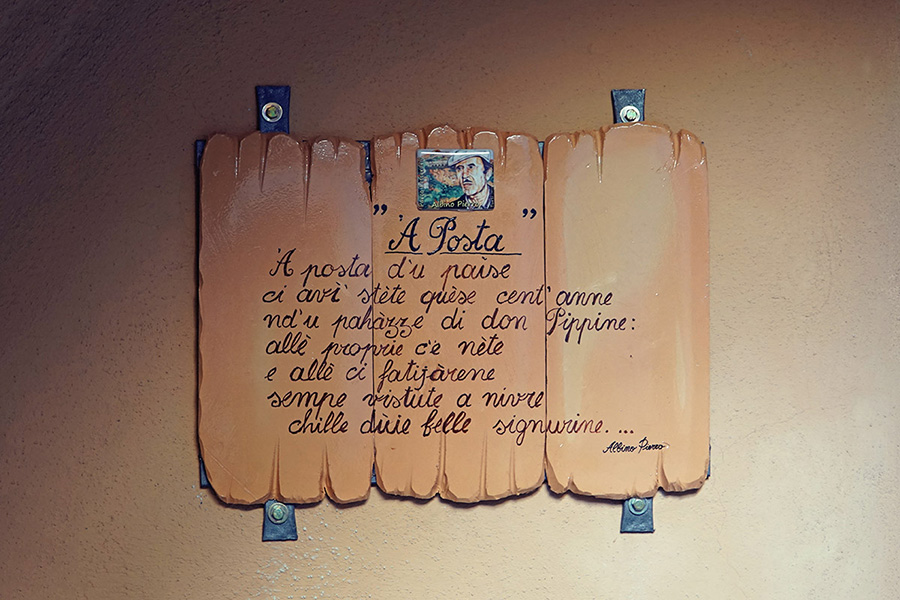 Albino Pierro
„ 'A Posta ”
'A posta d'u paìse
ci avì' stète quèse cent'anne
nd'u pahàzze di don Pippine:
allè proprie c'è nète
e allè ci fatijàrene
sempe vistute a nivre
chille dùie belle signurine. ...
Albino Pierro